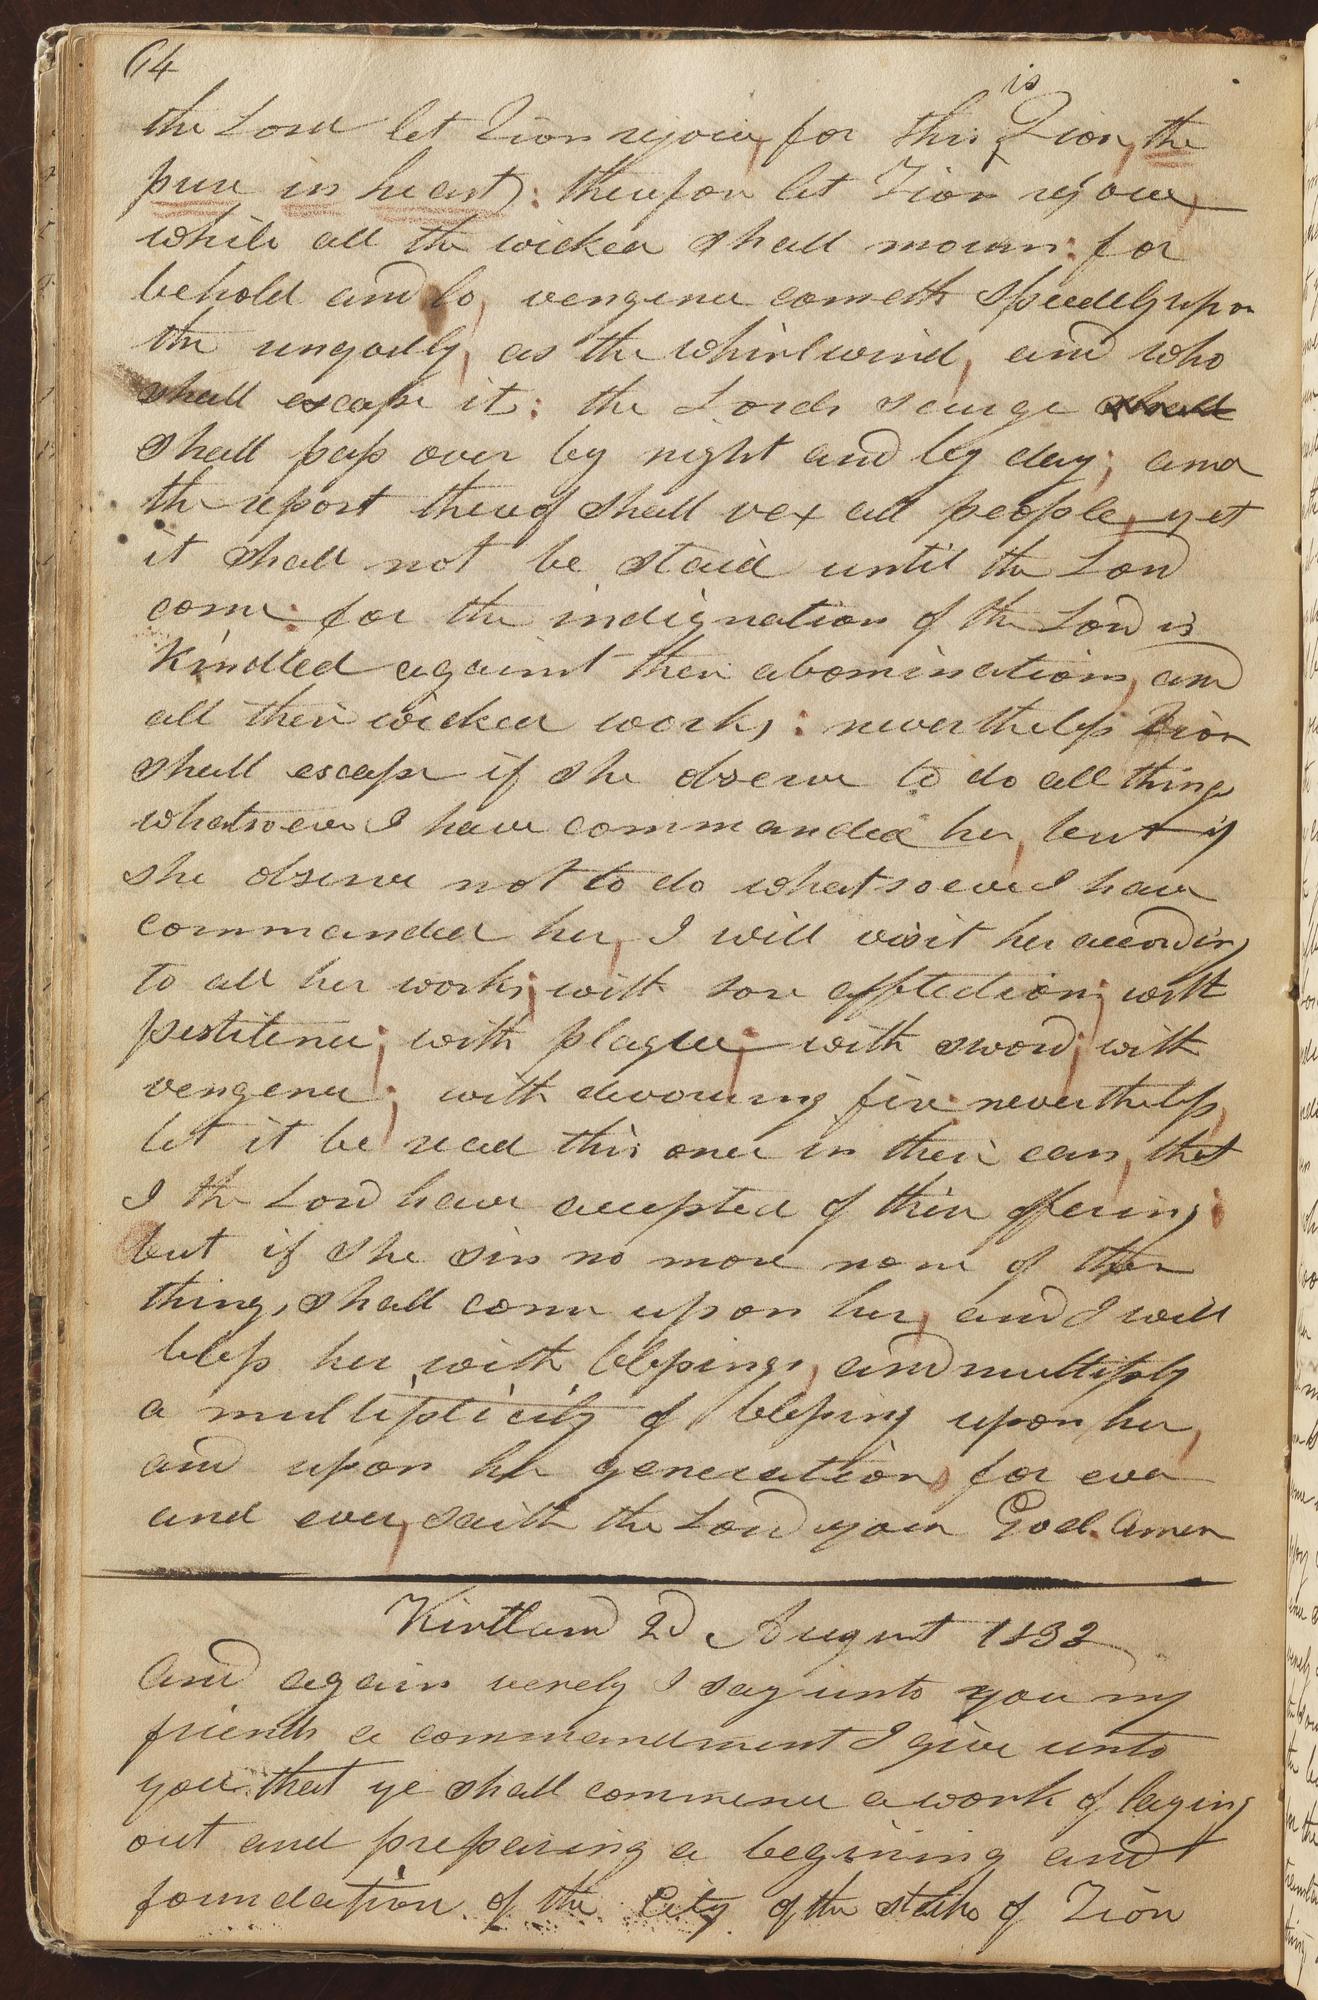 64
the Lord let Zion rejoice, for this is Zion, the
pure in heart): therefore let Zion rejoice,
while all the wicked shall mourn: for
behold and lo, vengence cometh speedely upon
the ungodly, as the whirlwind, and who
shall escape it: the Lords scurge shall
shall pass over by night and by day; and
the report thereof shall vex all people, yet
it shall not be staid until the Lord
come: for the indignation of the Lord is
Kindled against their abominations, and
all their wicked works: nevertheless Zion
shall escape if she observe to do all things
whatsoever I have commanded her, but if
she observe not to do whatsoever I have
commanded her, I will visit her according
to all her works; with sore afflediction; with
pestilence; with plague; with sword; with
vengence; with devouring fire: nevertheless,
let it be read this once in their ears, that
I the Lord have accepted of their offering:
but if she sin no more none of these
things, shall come upon her, and I will
bless her with blessings, and multiply
a multiplicity of blessings upon her,
and upon her generations for ever
and ever, saith the Lord your God. Amen
Kirtland 2d August 1833
And again verely I say unto you my
friends a commandment I give unto
you that ye shall commence a work of laying
out and prepairing a begining and
foundation of the City of the stake of Zion